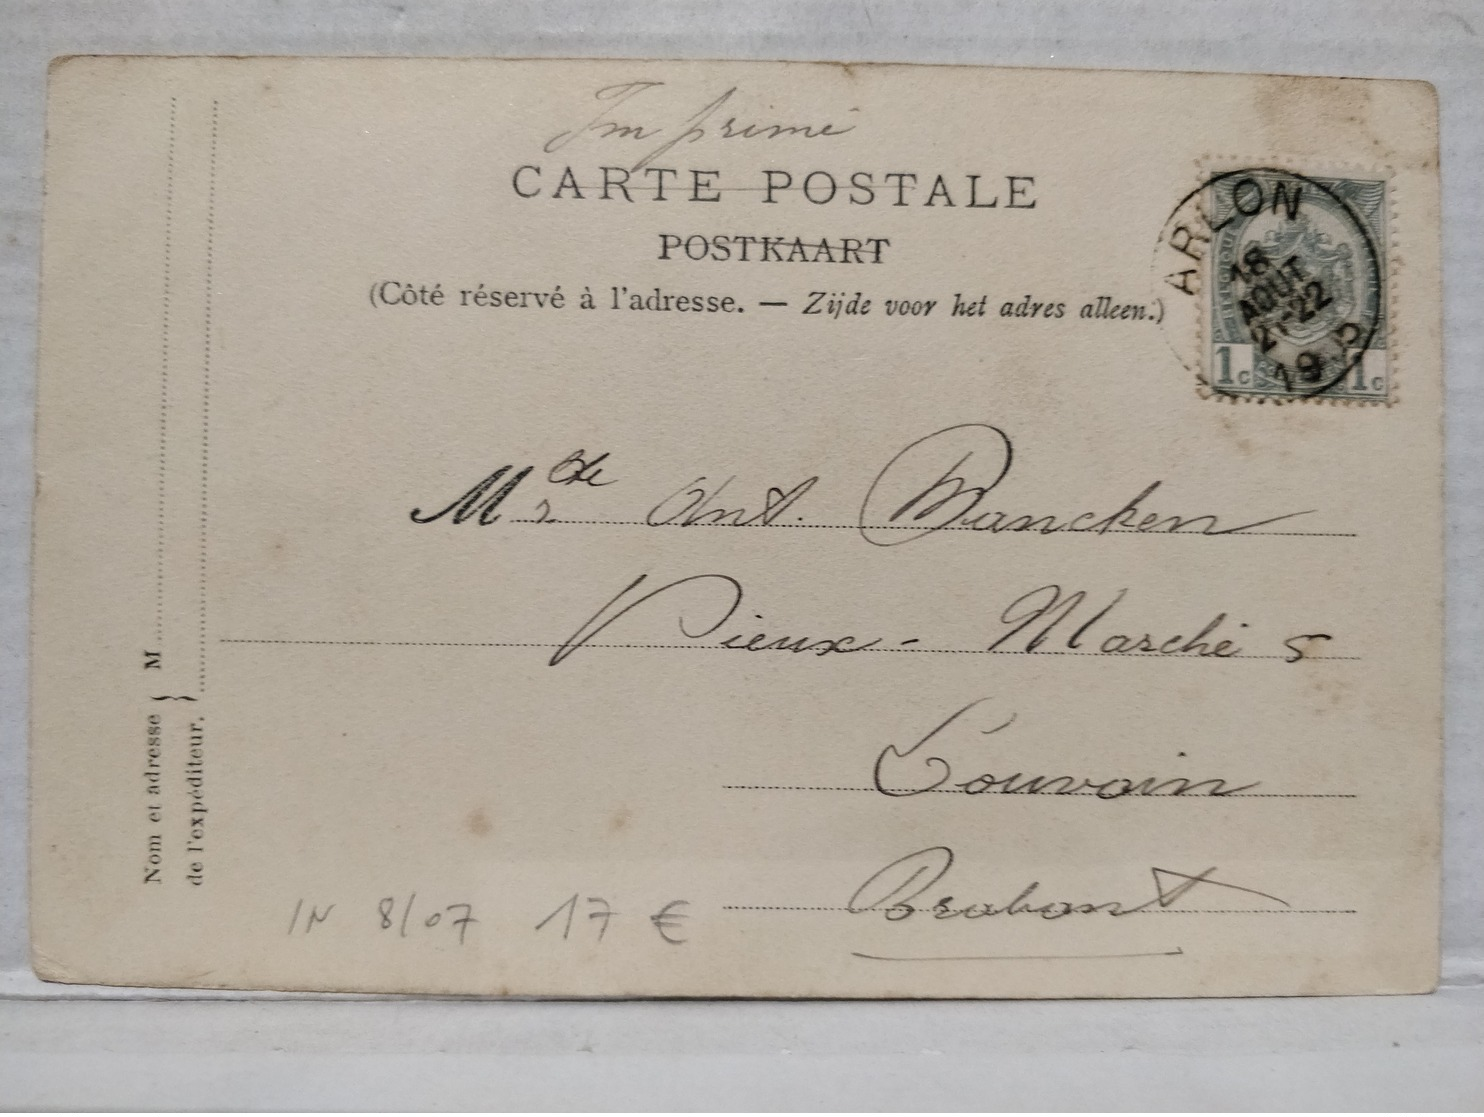 Imprimé
CARTE POSTALE
POSTKAART
(Côté réservé à l'adresse. — Zijde voor het adres alleen.)
ARLON
18
AOUT
21-22
19 5
BELGIQUE
1c 1c
M Ant. Brancken
Vieux-Marché 5
Louvain
Brabant
Nom et adresse } M
de l'expéditeur.
IN 8/07 17 €